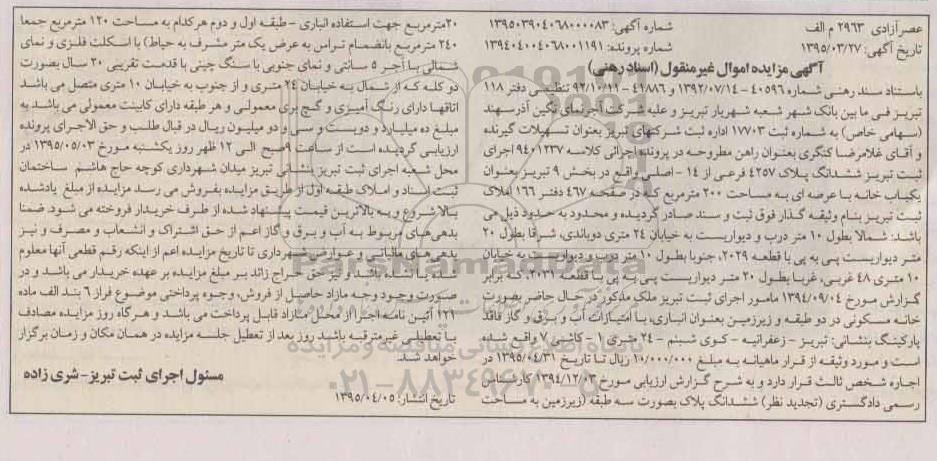 عصرآزادی ۲۹۶۳ م الف
شماره آگهی: ۱۳۹۵۰۳۹۰۴۰۶۸۰۰۰۰۸۳
تاریخ آگهی: ۱۳۹۵/۰۳/۲۷
شماره پرونده: ۱۳۹۴۰۴۰۰۴۰۶۸۰۰۱۱۹۱
آگهی مزایده اموال غیرمنقول (اسناد رهنی)
باستناد سند رهنی شماره ۴۰۵۹۶ - ۱۳۹۲/۰۷/۱۴ و ۴۱۸۸۶ - ۹۲/۱۰/۱۱ تنظیمی دفتر ۱۱۸
تبریز فی ما بین بانک شهر شعبه شهریار تبریز و علیه شرکت آجرنمای نگین آذرسهند
(سهامی خاص) به شماره ثبت ۱۷۷۰۳ اداره ثبت شرکتهای تبریز بعنوان تسهیلات گیرنده
و آقای غلامرضا کنگری بعنوان راهن مطروحه در پرونده اجرائی کلاسه ۹۴۰۱۲۳۷ اجرای
ثبت تبریز ششدانگ پلاک ۴۲۵۷ فرعی از ۱۴ - اصلی واقع در بخش ۹ تبریز بعنوان
یکباب خانه با عرصه ای به مساحت ۲۰۰ مترمربع که در صفحه ۴۶۷ دفتر ۱۶۶ املاک
ثبت تبریز بنام وثیقه گذار فوق ثبت و سند صادر گردیده و محدود به حدود ذیل می
باشد: شمالا بطول ۱۰ متر درب و دیواریست به خیابان ۲۴ متری دوباندی، شرقا بطول ۲۰
متر دیواریست پی به پی با قطعه ۲۰۲۹، جنوبا بطول ۱۰ متر درب و دیواریست به خیابان
۱۰ متری ۴۸ غربی، غربا بطول ۲۰ متر دیواریست پی به پی با قطعه ۲۰۳۱، که برابر
گزارش مورخ ۱۳۹۴/۰۹/۰۴ مامور اجرای ثبت تبریز ملک مذکور در حال حاضر بصورت
خانه مسکونی در دو طبقه و زیرزمین بعنوان انباری، با امتیازات آب و برق و گاز فاقد
پارکینگ بنشانی: تبریز - زعفرانیه - کوی شبنم - ۲۴ متری ۱ - کاشی ۷ واقع شده
است و مورد وثیقه از قرار ماهیانه به مبلغ ۱۰/۰۰۰/۰۰۰ ریال تا تاریخ ۱۳۹۵/۰۴/۳۱ در
اجاره شخص ثالث قرار دارد و به شرح گزارش ارزیابی مورخ ۱۳۹۴/۱۲/۰۳ کارشناس
رسمی دادگستری (تجدید نظر) ششدانگ پلاک بصورت سه طبقه (زیرزمین به مساحت
۲۰مترمربع جهت استفاده انباری - طبقه اول و دوم هرکدام به مساحت ۱۲۰ مترمربع جمعا
۲۴۰ مترمربع بانضمام تراس به عرض یک متر مشرف به حیاط) با اسکلت فلزی و نمای
شمالی با آجر ۵ سانتی و نمای جنوبی با سنگ چینی با قدمت تقریبی ۲۰ سال بصورت
دو کله که از شمال به خیابان ۲۴ متری و از جنوب به خیابان ۱۰ متری متصل می باشد
اتاقها دارای رنگ آمیزی و گچ بری معمولی و هر طبقه دارای کابینت معمولی می باشد به
مبلغ ده میلیارد و دویست و سی و دو میلیون ریال در قبال طلب و حق الاجرای پرونده
ارزیابی گردیده است از ساعت ۹صبح الی ۱۲ ظهر روز یکشنبه مورخ ۱۳۹۵/۰۵/۰۳ در
محل شعبه اجرای ثبت تبریز بنشانی تبریز میدان شهرداری کوچه حاج هاشم ساختمان
ثبت اسناد و املاک طبقه اول از طریق مزایده بفروش می رسد مزایده از مبلغ یادشده
بالا شروع و به بالاترین قیمت پیشنهاد شده از طرف خریدار فروخته می شود. ضمنا
بدهی‌های مربوط به آب و برق و گاز اعم از حق اشتراک و انشعاب و مصرف و نیز
بدهی‌های مالیاتی و عوارض شهرداری تا تاریخ مزایده اعم از اینکه رقم قطعی آنها معلوم
شده یا نشده باشد و نیز حق حراج زائد بر مبلغ مزایده بر عهده خریدار می باشد و در
صورت وجود وجه مازاد حاصل از فروش، وجوه پرداختی موضوع فراز ۶ بند الف ماده
۱۲۱ آئین نامه اجرا از محل مازاد قابل پرداخت می باشد و هرگاه روز مزایده مصادف
با تعطیلی غیرمترقبه باشد روز بعد از تعطیل جلسه مزایده در همان مکان و زمان برگزار
خواهد شد.
مسئول اجرای ثبت تبریز - شری زاده
تاریخ انتشار: ۱۳۹۵/۰۴/۰۵